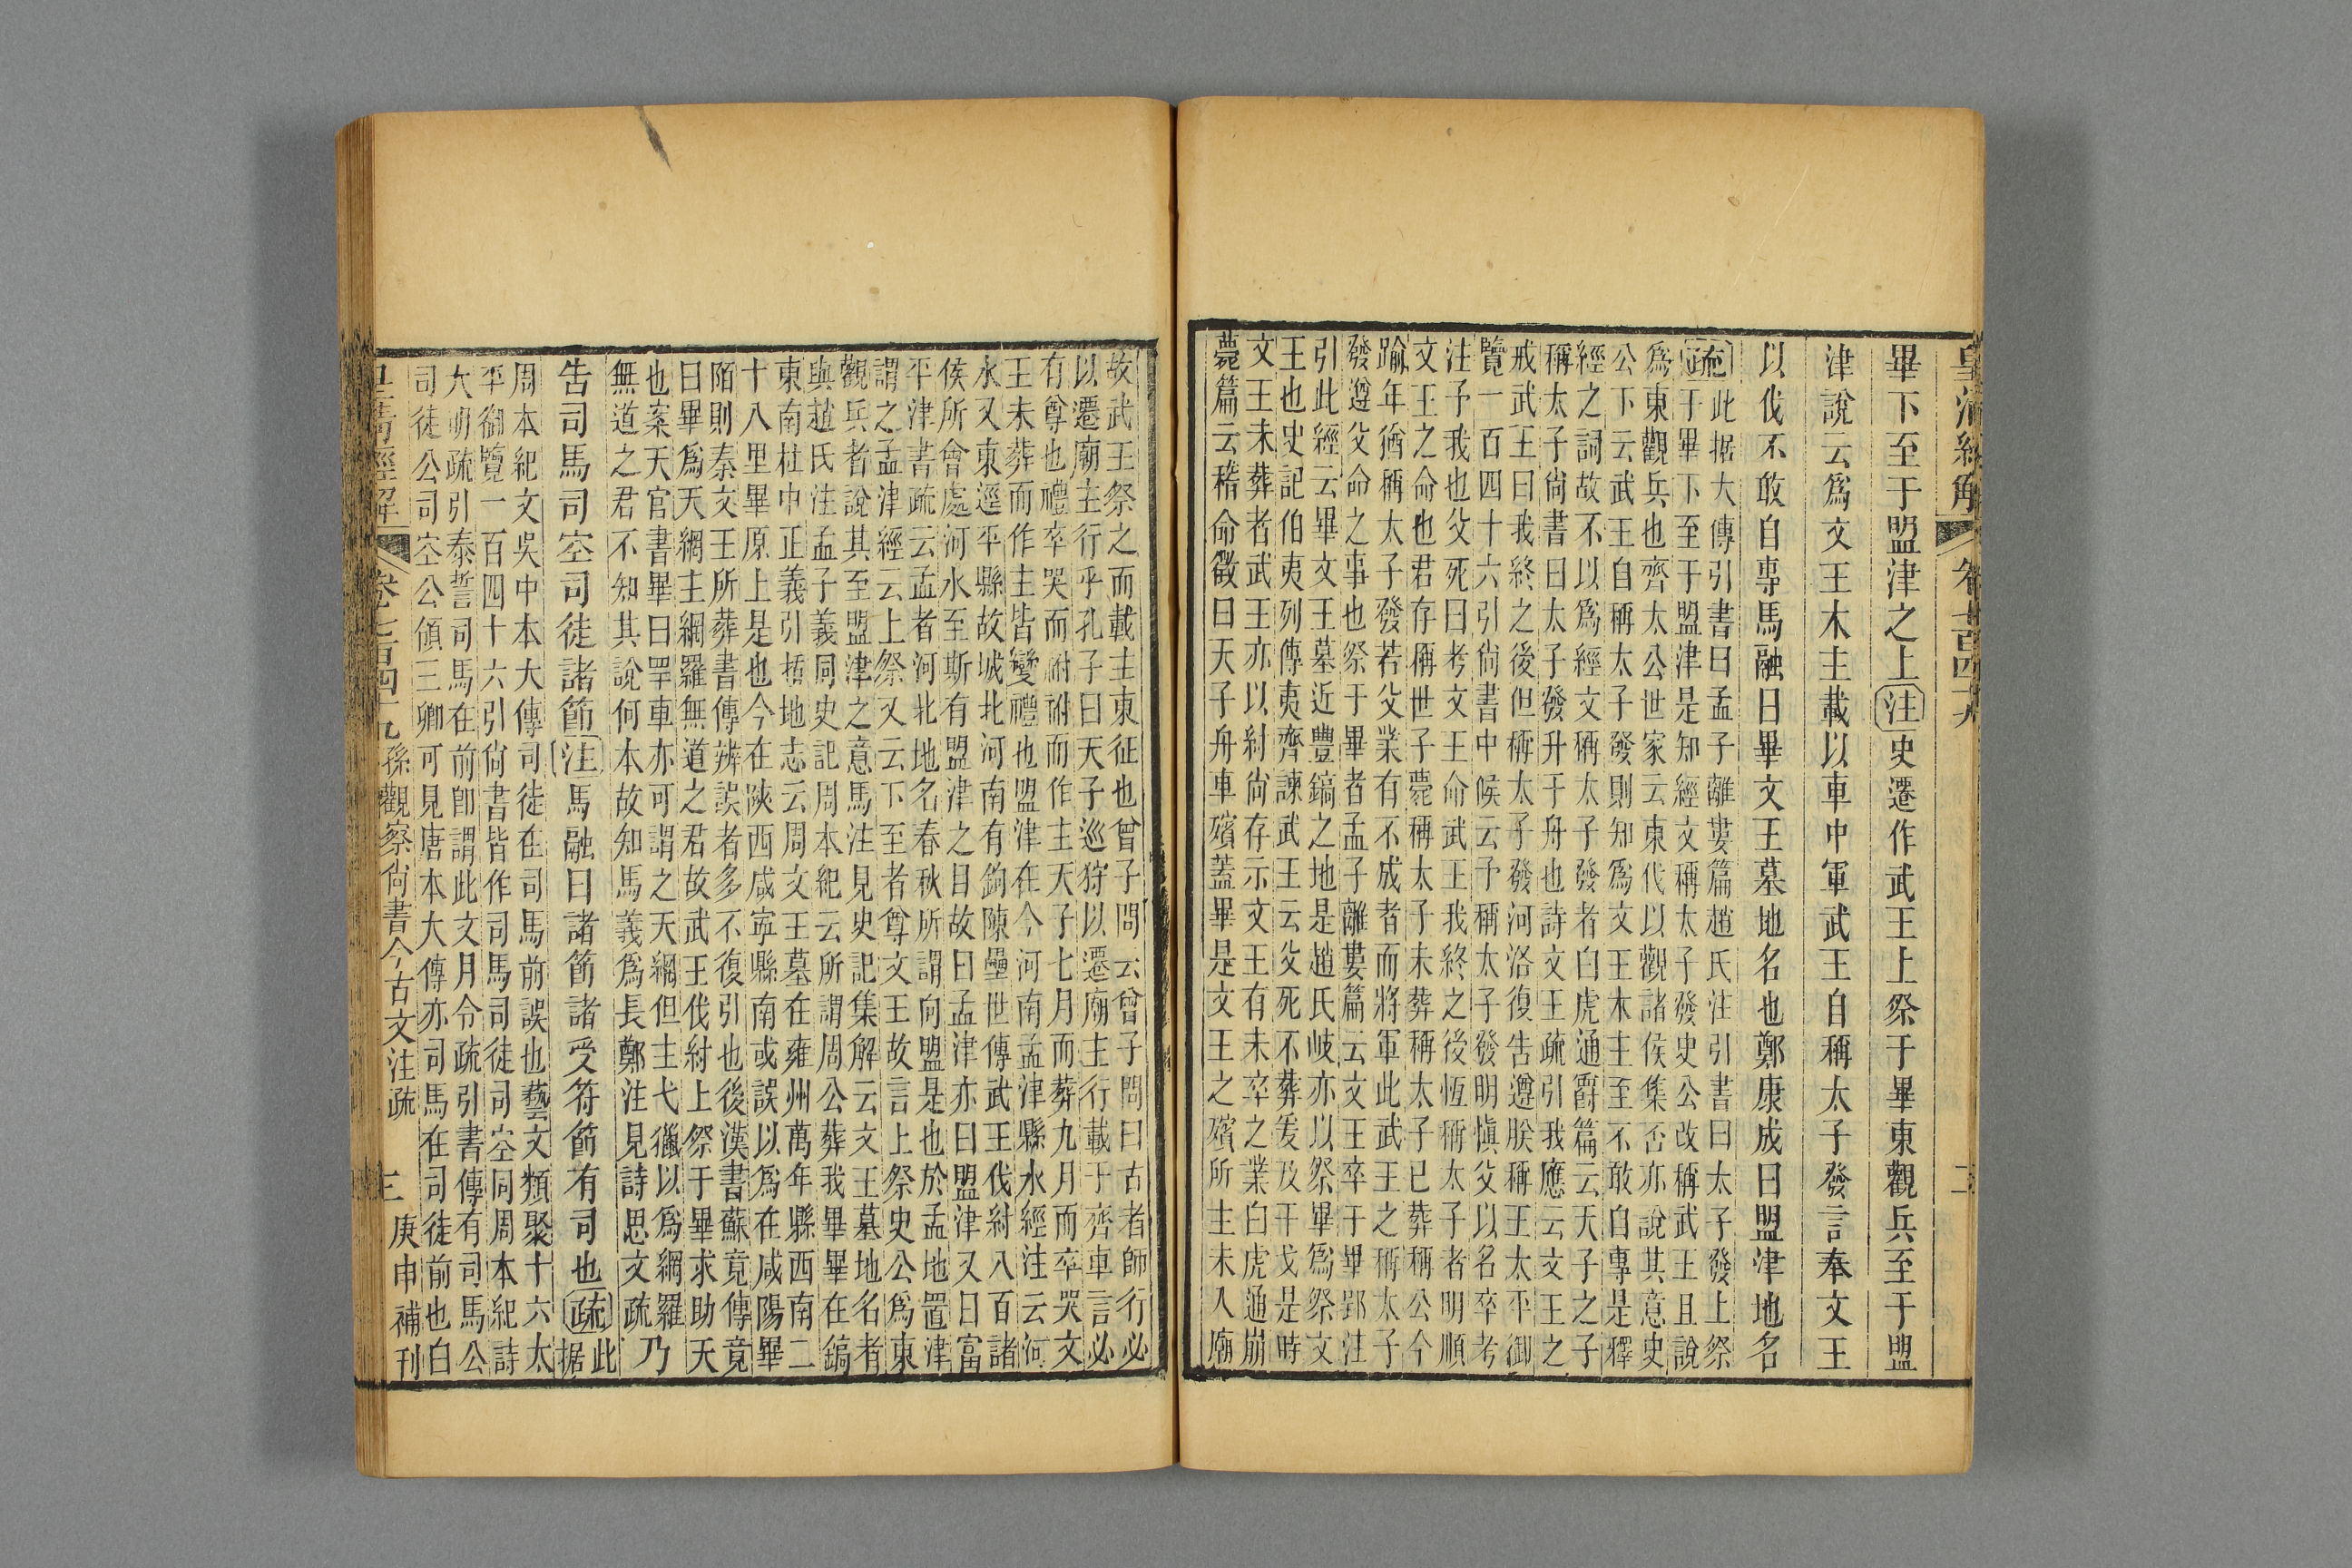 皇清經解 卷七百四十九 二
畢下至于盟津之上注史遷作武王上祭于畢東觀兵至于盟
津說云爲文王木主載以車中軍武王自稱太子發言奉文王
以伐不敢自專馬融曰畢文王墓地名也鄭康成曰盟津地名
疏此据大傳引書曰孟子離婁篇趙氏注引書曰太子發上祭
于畢下至于盟津是知經文稱太子發史公改稱武王且說
爲東觀兵也齊太公世家云東伐以觀諸侯集否亦說其意史
公下云武王自稱太子發則知爲文王木主至不敢自專是釋
經之詞故不以爲經文稱太子發者白虎通爵篇云天子之子
稱太子尙書曰太子發升于舟也詩文王疏引我應云文王之
戒武王曰我終之後但稱太子發河洛復告遵朕稱王太平御
覽一百四十六引尙書中候云予稱太子發明愼父以名卒考
注予我也父死曰考文王命武王我終之後恆稱太子者明順
文王之命也君存稱世子薨稱太子未葬稱太子已葬稱公今
踰年猶稱太子發若父業有不成者而將軍此武王之稱太子
發遵父命之事也祭于畢者孟子離婁篇云文王卒于畢郢注
引此經云畢文王墓近豐鎬之地是趙氏岐亦以祭畢爲祭文
王也史記伯夷列傳夷齊諫武王云父死不葬爰及干戈是時
文王未葬者武王亦以紂尙存示文王有未卒之業白虎通崩
薨篇云稽命徵曰天子舟車殯蓋畢是文王之殯所主未入廟
故武王祭之而載主東征也曾子問云曾子問曰古者師行必
以遷廟主行乎孔子曰天子巡狩以遷廟主行載于齊車言必
有尊也禮卒哭而祔祔而作主天子七月而葬九月而卒哭文
王未葬而作主皆變禮也盟津在今河南孟津縣水經注云河
水又東逕平縣故城北河南有鉤陳壘世傳武王伐紂八百諸
侯所會處河水至斯有盟津之目故曰孟津亦曰盟津又曰富
平津書疏云孟者河北地名春秋所謂向盟是也於孟地置津
謂之孟津經云上祭又云下至者尊文王故言上祭史公爲東
觀兵者說其至盟津之意馬注見史記集解云文王墓地名者
與趙氏注孟子義同史記周本紀云所謂周公葬我畢畢在鎬
東南杜中正義引括地志云周文王墓在雍州萬年縣西南二
十八里畢原上是也今在陝西咸寧縣南或誤以爲在咸陽畢
陌則秦文王所葬書傳辨誤者多不復引也後漢書蘇竟傳竟
曰畢爲天網主網羅無道之君故武王伐紂上祭于畢求助天
也案天官書畢曰罕車亦可謂之天網但主弋獵以爲網羅
無道之君不知其說何本故知馬義爲長鄭注見詩思文疏乃
告司馬司空司徒諸節注馬融曰諸節諸受符節有司也疏此据
周本紀文吳中本大傳司徒在司馬前誤也藝文類聚十六太
平御覽一百四十六引尙書皆作司馬司徒司空同周本紀詩
大明疏引泰誓司馬在前卽謂此文月令疏引書傳有司馬公
司徒公司空公領三卿可見唐本大傳亦司馬在司徒前也白
皇清經解 卷七百四十九 孫觀察尙書今古文注疏 三 庚申補刊